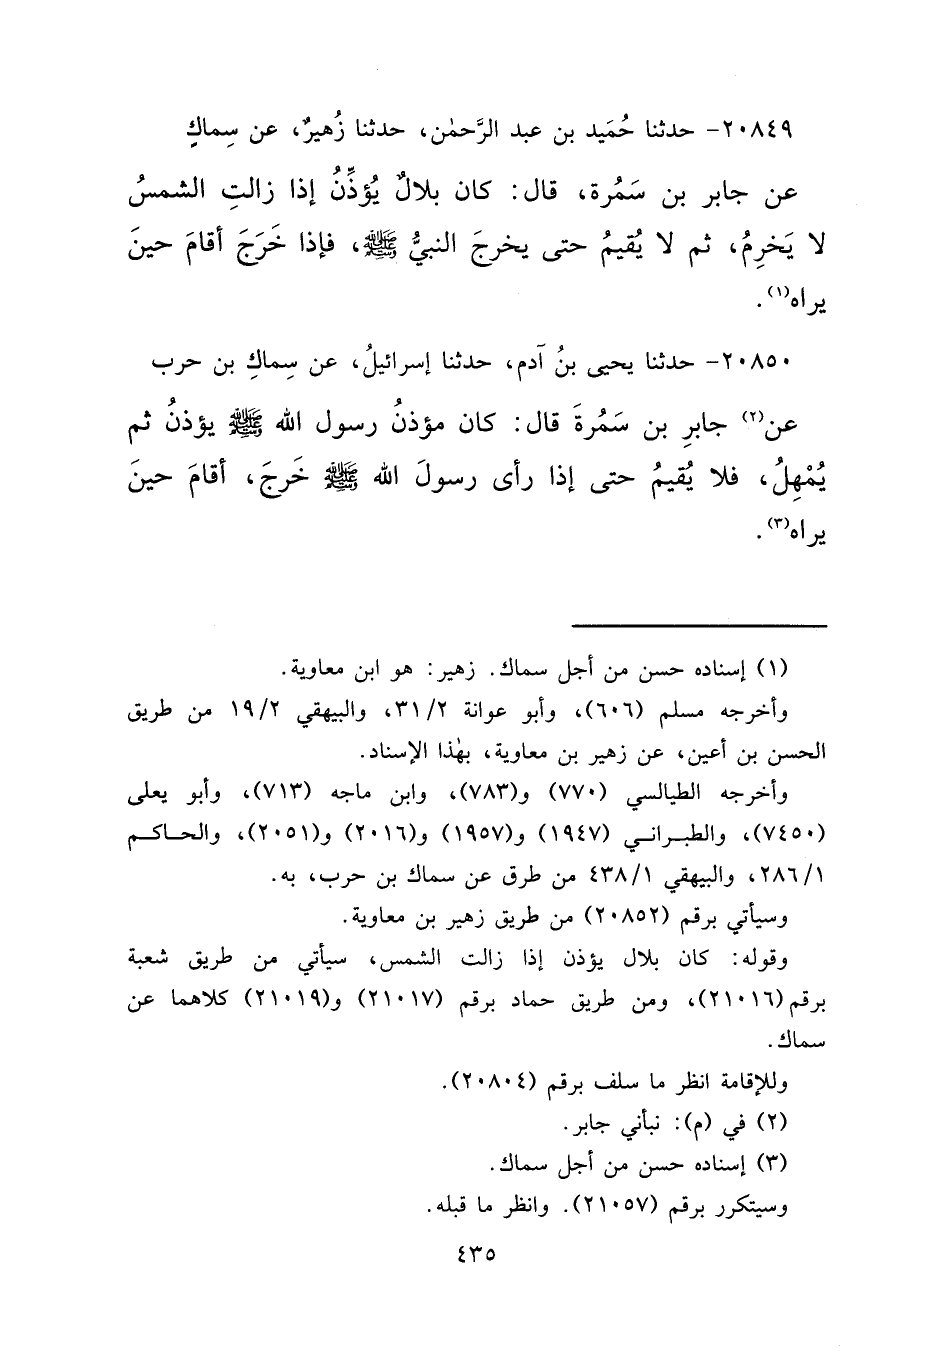 ٢٠٨٤٩- حدثنا حُمَيد بن عبد الرَّحمٰن، حدثنا زُهيرٌ، عن سِماكٍ
عن جابر بن سَمُرة، قال: كان بلالٌ يُؤذِّنُ إذا زالتِ الشمسُ
لا يَخرِمُ، ثم لا يُقيمُ حتى يخرجَ النبيُّ ﷺ، فإذا خَرَجَ أقامَ حينَ
يراه(١).
٢٠٨٥٠- حدثنا يحيى بنُ آدم، حدثنا إسرائيلُ، عن سِماكِ بن حرب
عن(٢) جابرِ بن سَمُرةَ قال: كان مؤذنُ رسول الله ﷺ يؤذنُ ثم
يُمْهِلُ، فلا يُقيمُ حتى إذا رأى رسولَ الله ﷺ خَرجَ، أقامَ حينَ
يراه(٣).
(١) إسناده حسن من أجل سماك. زهير: هو ابن معاوية.
وأخرجه مسلم (٦٠٦)، وأبو عوانة ٣١/٢، والبيهقي ١٩/٢ من طريق
الحسن بن أعين، عن زهير بن معاوية، بهٰذا الإسناد.
وأخرجه الطيالسي (٧٧٠) و(٧٨٣)، وابن ماجه (٧١٣)، وأبو يعلى
(٧٤٥٠)، والطبراني (١٩٤٧) و(١٩٥٧) و(٢٠١٦) و(٢٠٥١)، والحاكم
٢٨٦/١، والبيهقي ٤٣٨/١ من طرق عن سماك بن حرب، به.
وسيأتي برقم (٢٠٨٥٢) من طريق زهير بن معاوية.
وقوله: كان بلال يؤذن إذا زالت الشمس، سيأتي من طريق شعبة
برقم (٢١٠١٦)، ومن طريق حماد برقم (٢١٠١٧) و(٢١٠١٩) كلاهما عن
سماك.
وللإقامة انظر ما سلف برقم (٢٠٨٠٤).
(٢) في (م): نبأني جابر.
(٣) إسناده حسن من أجل سماك.
وسيتكرر برقم (٢١٠٥٧). وانظر ما قبله.
٤٣٥